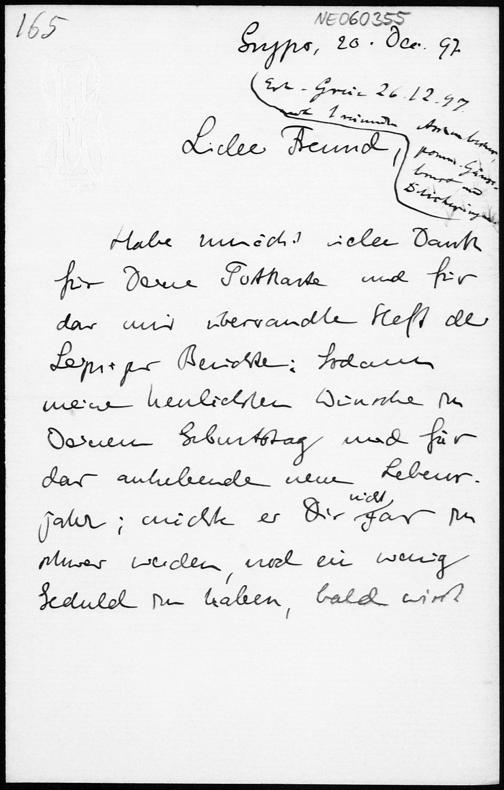 165
NE060355
Gryps, 20. Dec. 97
26.12.97
Lieber Freund,
Habe zunächst vielen Dank
für Deine Postkarte und für
das mir übersandte Heft der
Leipziger Berichte; sodann
meine herzlichsten Wünsche zu
Deinem Geburtstag und für
das anhebende neue Lebens-
jahr; möchte es Dir nicht gar zu
schwer werden, noch ein wenig
Geduld zu haben, bald wirst